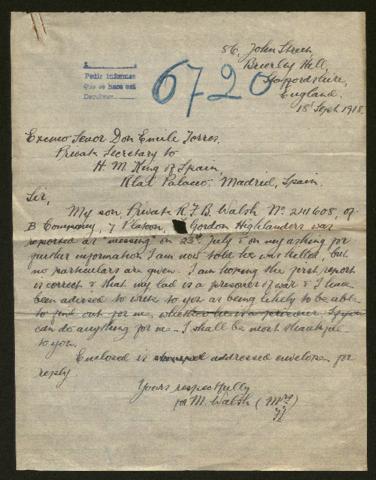 86, John Street,
Brierley Hill,
Staffordshire,
England.
18 Sept 1918.
Pedir informes
Que se hace así
6720
Excmo Senor Don Emile Torres,
Private Secretary to
H. M. King of Spain,
Real Palacio. Madrid, Spain.
Sir,
My son, Private R. F. B. Walsh No 241608, of
B Company, 7 Platoon, Gordon Highlanders was
reported as "missing" on 23rd July & on my asking for
further information I am now told he was killed, but
no particulars are given. I am hoping the first report
is correct & that my lad is a prisoner of war & I have
been advised to write to you as being likely to be able
to find out for me, whether he is a prisoner. If you
can do anything for me - I shall be most thankful
to you.
Enclosed is stamped addressed envelope for
reply
Yours respectfully
M. Walsh (Mrs)